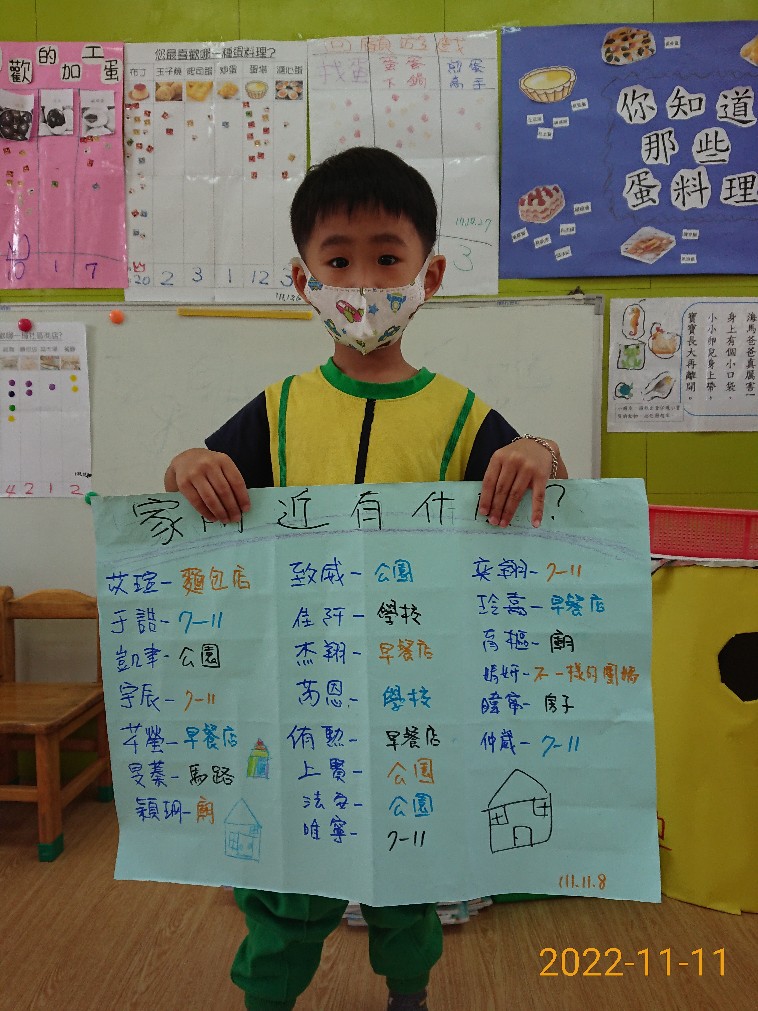 歡的加工蛋
0 1 7
您最喜歡哪一種蛋料理?
布丁 玉子燒 起司蛋 炒蛋 蛋塔 溏心蛋
20 2 3 1 12 3
找蛋 蛋蛋下鍋 煎蛋高手
111.10.27
3
你知道
那些
蛋料理
海馬爸爸真厲害
身上有個小口袋,
小小卵兒身上帶,
寶寶長大再離開。
4 2 1 2
家附近有什麼?
艾瑄-麵包店
于誥-7-11
凱聿-公園
宇辰-7-11
芊螢-早餐店
旻蓁-馬路
穎玥-廟
致威-公園
佳阡-學校
杰翔-早餐店
芮恩-學校
侑勳-早餐店
上賓-公園
法安-公園
唯寧-7-11
奕翔-7-11
玲嘉-早餐店
育樞-廟
婧妍-不一樣的圍牆
暐甯-房子
仲葳-7-11
111.11.8
2022-11-11